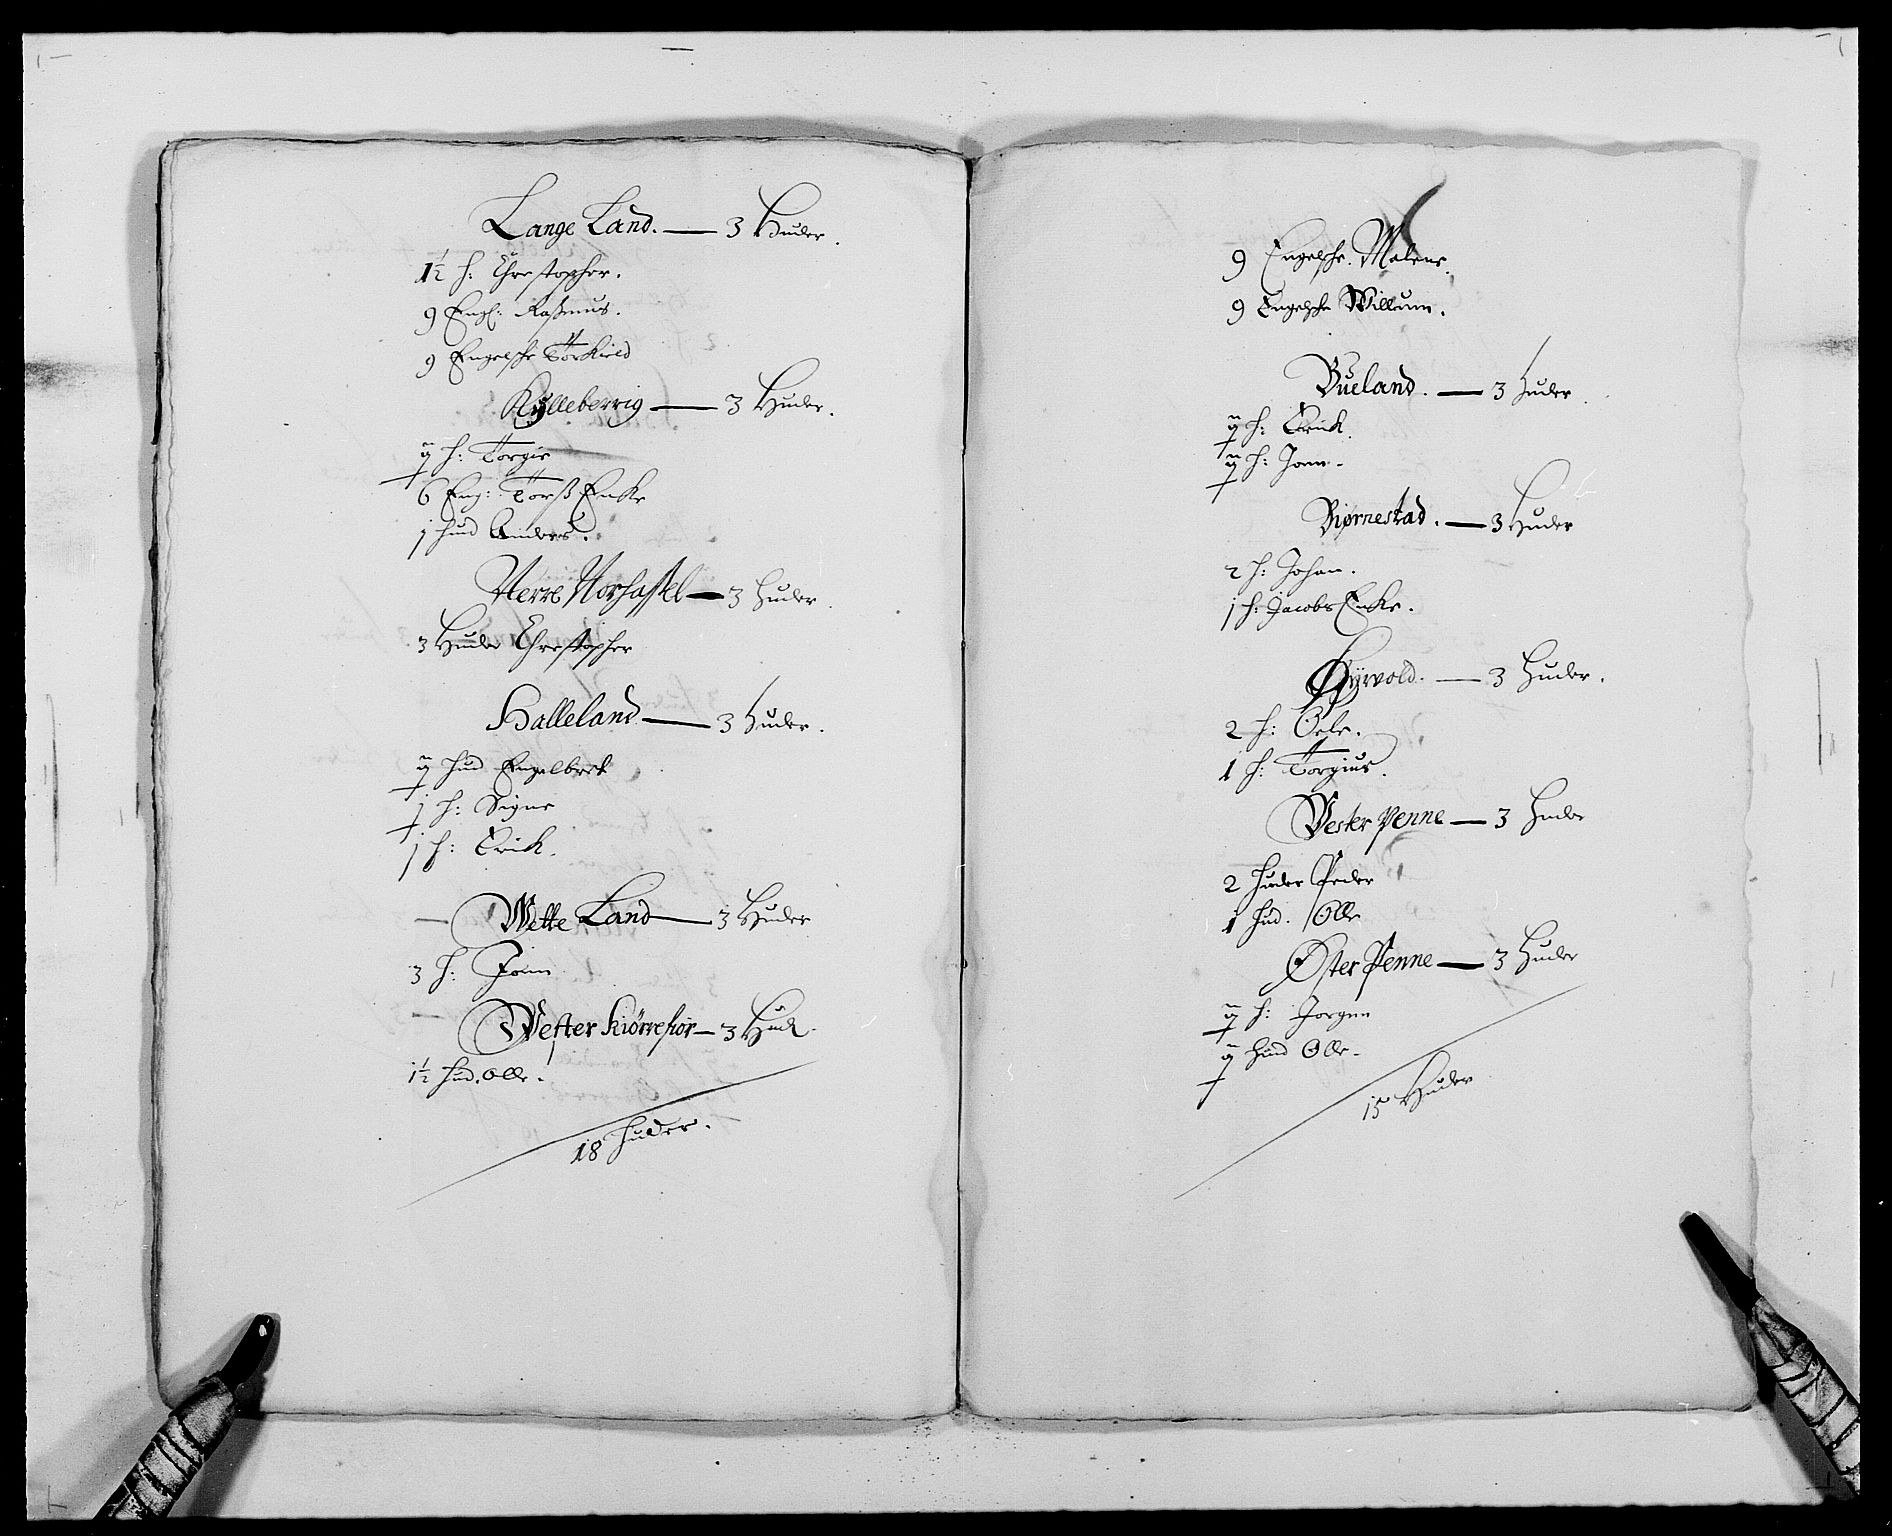 Lange Land. — 3 Huder.
1½ h: Christopher.
9 Engl: Raßmus.
9 Engelsche Torkield
Kylleberrig — 3 Huder.
h: Torgie
6 Eng: Torß Enke
1 hud Anders.
Nerre Norhassel — 3 Huder.
3 Huder Christopher
Halleland — 3 Huder.
hud Engelbret
1 h: Signe
1 h: Erik.
Mette Land — 3 Huder
3 h: Jonn
Wester Kiørrefior — 3 Hud.
1½ hud. Olle.
18 huder.
9 Engelsche. Malene.
9 Engelsche Willum.
Bueland. — 3 Huder.
h: Erick.
h: Jonn.
Biørnestad. — 3 Huder
2 h: Johan.
1 h: Jacobs Enke.
Øyvold. — 3 Huder.
2 h: Oele.
1 h: Torgius.
Vester Penne — 3 Huder
2 Huder Peder
1 hud. Olle
Øster Penne — 3 Huder
h: Jorgen
hud Olle.
15 Huder